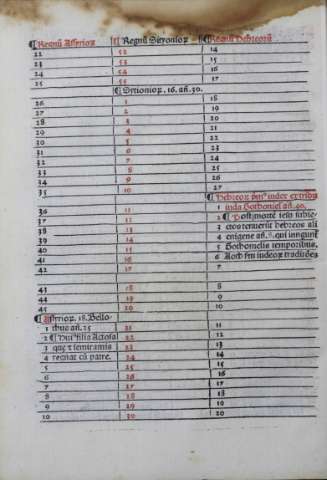 ¶Regnū Assirioꝝ ¶Regnū Sicionioꝝ ¶Regnū Hebreorū
22 52 14
23 53 15
24 54 16
25 55 17
¶Sitionioꝝ. 16. añ. 30.
26 1 18
27 2 19
28 3 20
29 4 21
30 5 22
31 6 23
32 7 24
33 8 25
34 9 26
35 10 27
¶Hebreoꝝ
36 11 1 iuda Gothoniel añ. 40.
37 12 2 ¶Post mortē iesu subie
38 13 3 ctos tenuerūt hebreos ali
39 14 4 enigene añ. 8. qui iungunt
40 15 5 Gothonielis temporibus,
41 16 6 scdm iudeoꝝ traditiōes
42 17 7
43 18 8
44 19 9
45 20 10
¶Assirioꝝ. 18. Bello
1 chus añ. 25 21 11
2 ¶Huiꝰ filia Actosa 22 12
3 que ⁊ semiramis 23 13
4 regnat cū patre. 24 14
5 25 15
6 26 16
7 27 17
8 28 18
9 29 19
10 30 20